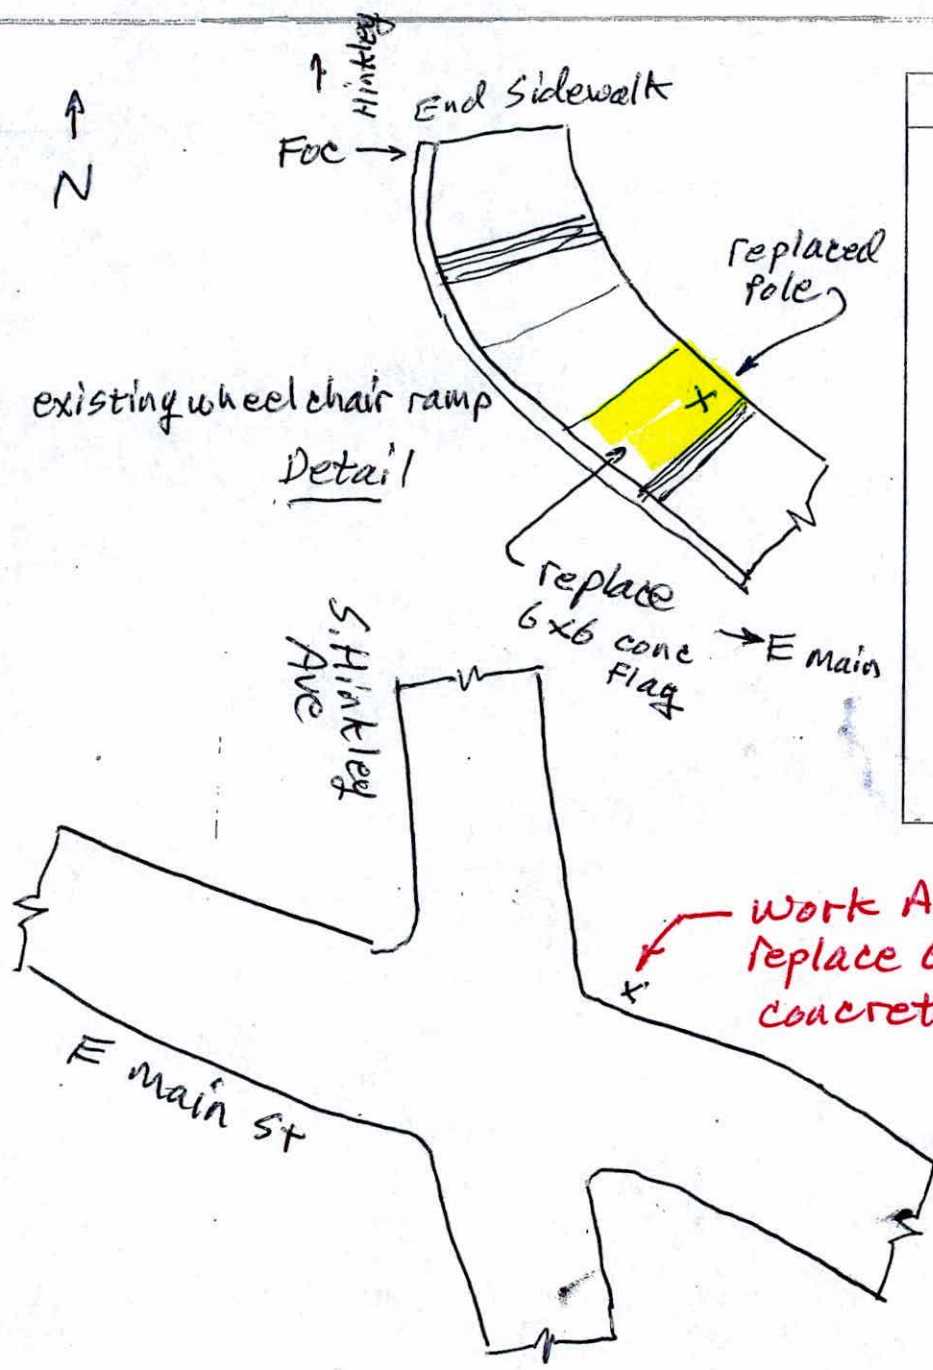 Hinkley
End Sidewalk
Foc
N
replaced
pole
X
existing wheelchair ramp
Detail
replace
6x6 conc
Flag
E Main
S. Hinkley
Ave
Work A
replace c
concret
X
E Main St